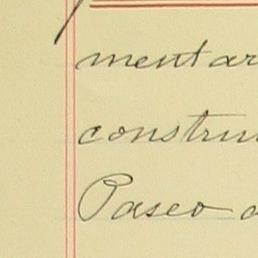 ment ar
constru
Paseo d